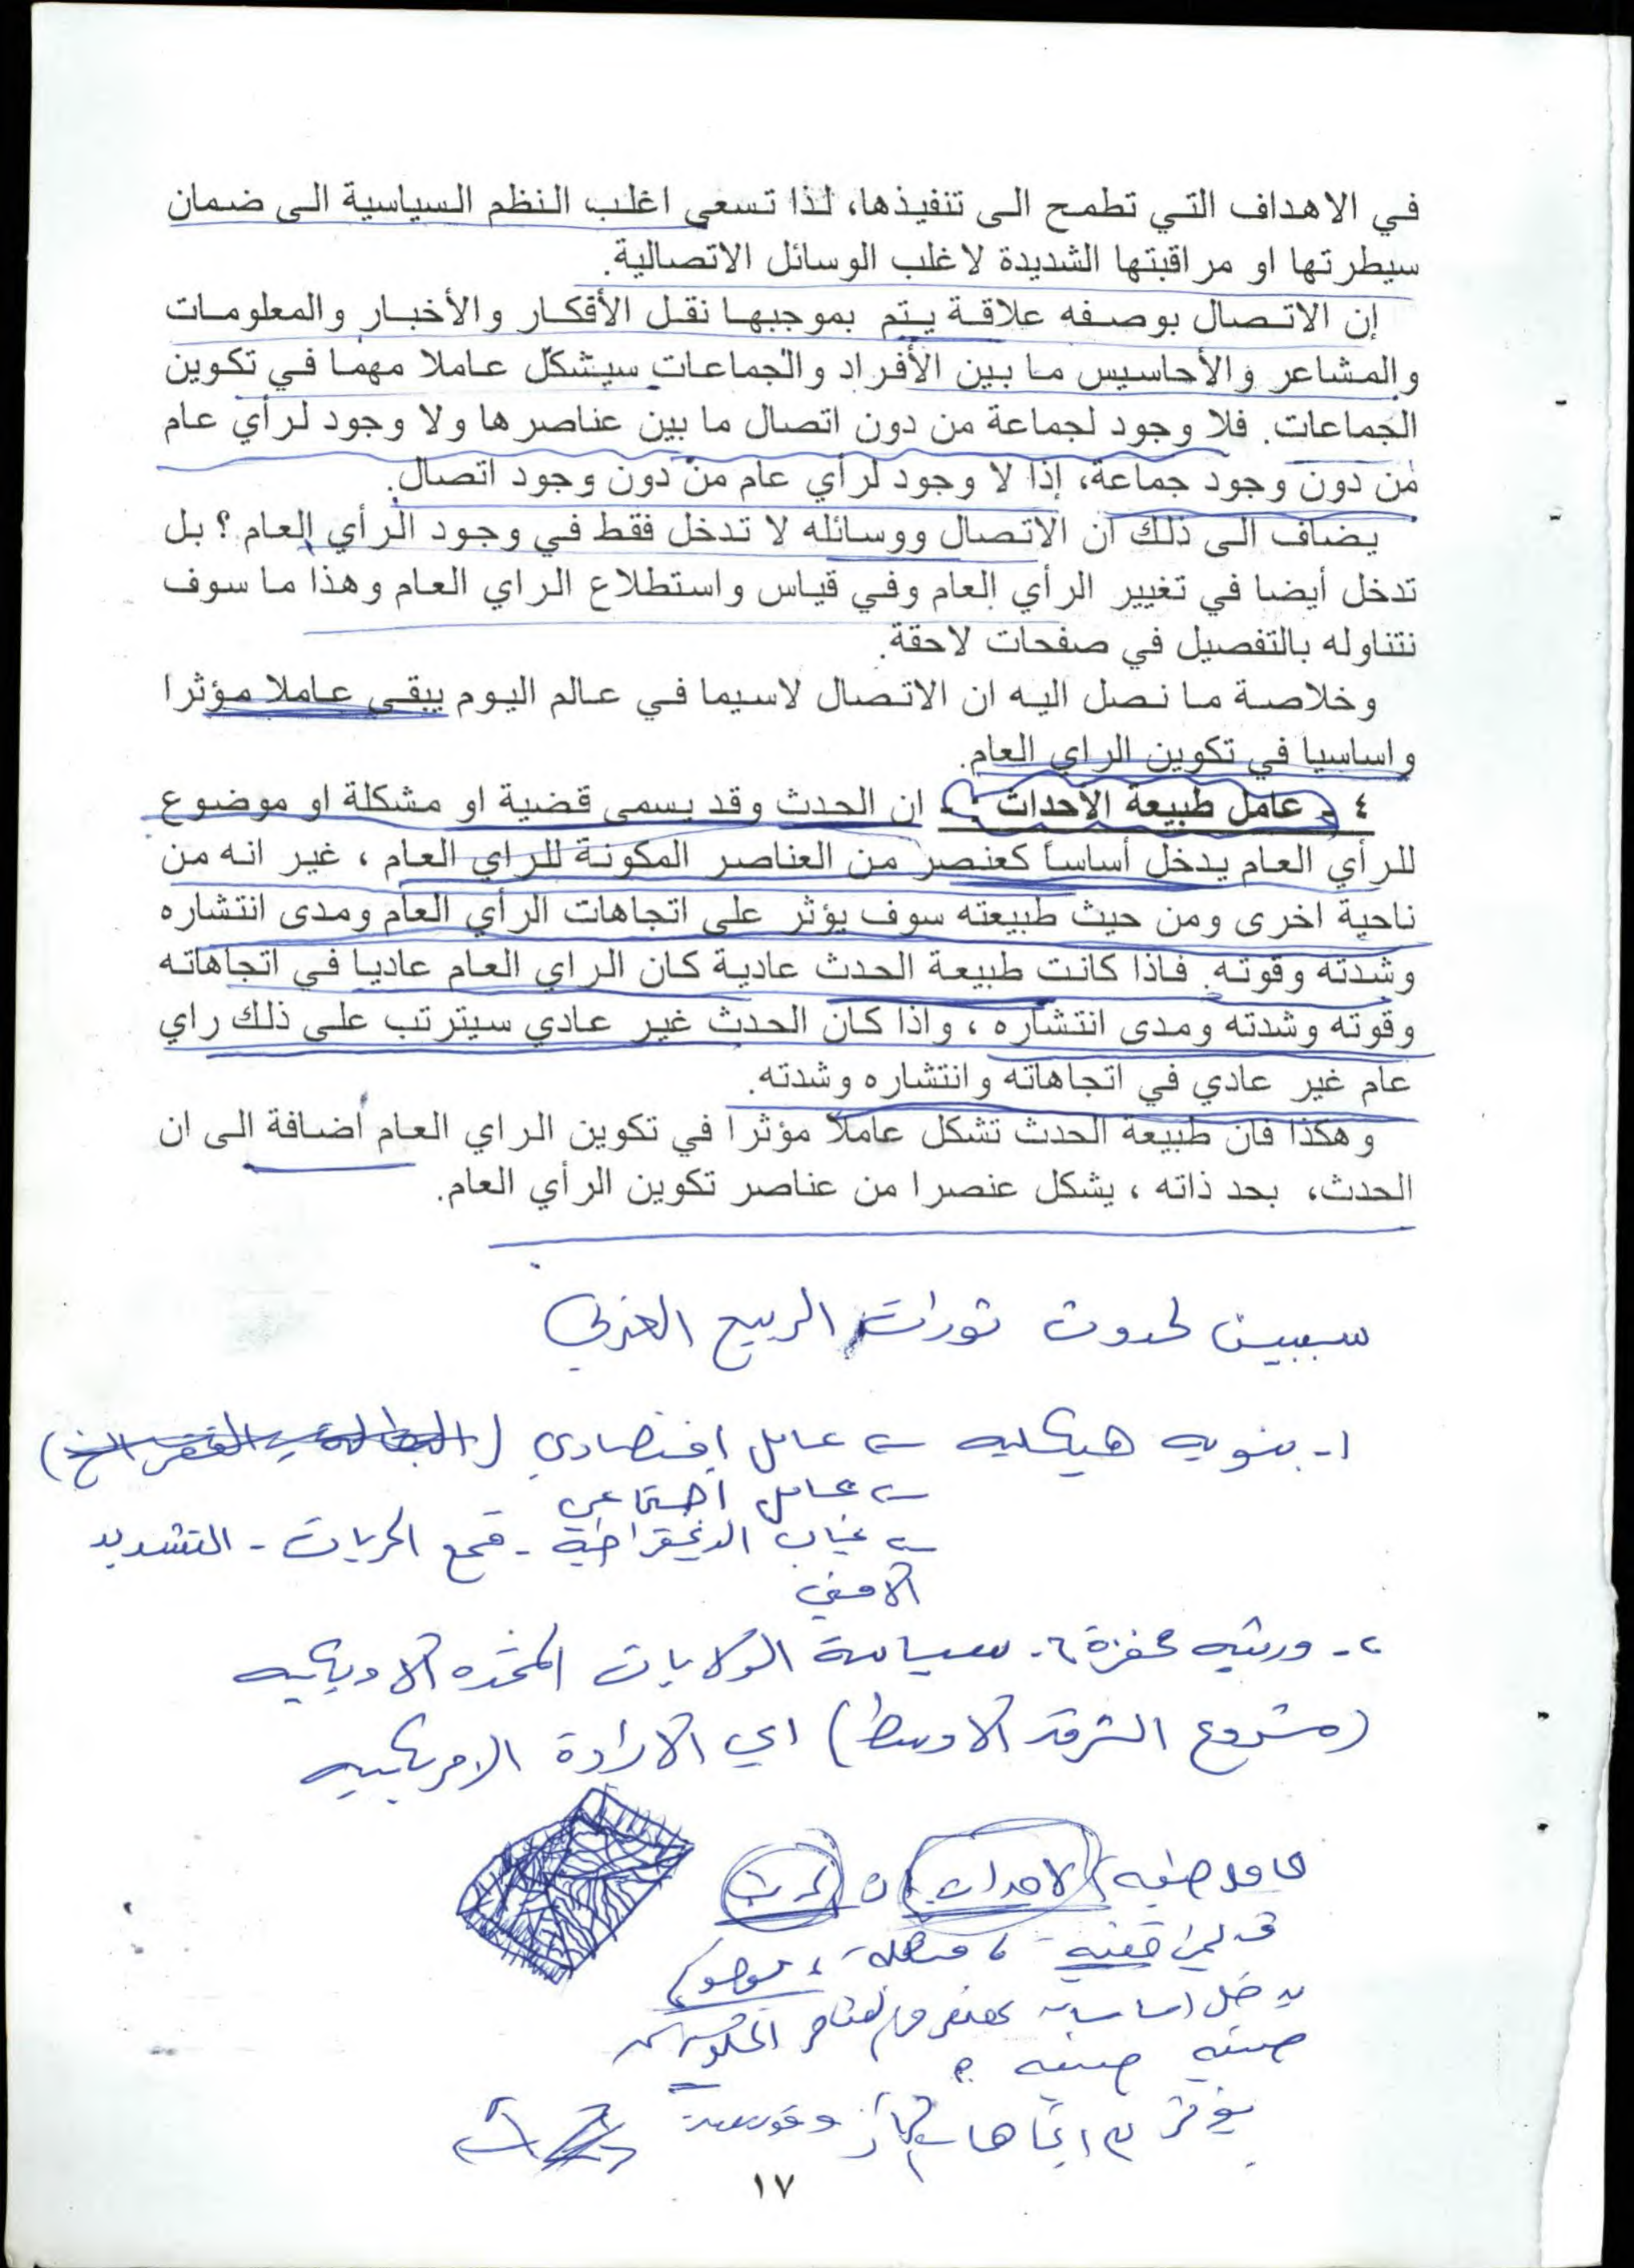 في الاهداف التي تطمح الى تنفيذها، لذا تسعى اغلب النظم السياسية الى ضمان
سيطرتها او مراقبتها الشديدة لاغلب الوسائل الاتصالية.
إن الاتصال بوصفه علاقة يتم بموجبها نقل الأفكار والأخبار والمعلومات
والمشاعر والأحاسيس ما بين الأفراد والجماعات سيشكل عاملا مهما في تكوين
الجماعات. فلا وجود لجماعة من دون اتصال ما بين عناصرها ولا وجود لرأي عام
من دون وجود جماعة، إذا لا وجود لرأي عام من دون وجود اتصال.
يضاف الى ذلك ان الاتصال ووسائله لا تدخل فقط في وجود الرأي العام ؟ بل
تدخل أيضا في تغيير الرأي العام وفي قياس واستطلاع الراي العام وهذا ما سوف
نتناوله بالتفصيل في صفحات لاحقة.
وخلاصة ما نصل اليه ان الاتصال لاسيما في عالم اليوم يبقى عاملا مؤثرا
واساسيا في تكوين الراي العام.
٤ - عامل طبيعة الأحداث : ان الحدث وقد يسمى قضية او مشكلة او موضوع
للرأي العام يدخل أساساً كعنصر من العناصر المكونة للراي العام ، غير انه من
ناحية اخرى ومن حيث طبيعته سوف يؤثر على اتجاهات الرأي العام ومدى انتشاره
وشدته وقوته. فاذا كانت طبيعة الحدث عادية كان الراي العام عاديا في اتجاهاته
وقوته وشدته ومدى انتشاره ، واذا كان الحدث غير عادي سيترتب على ذلك راي
عام غير عادي في اتجاهاته وانتشاره وشدته.
وهكذا فان طبيعة الحدث تشكل عاملاً مؤثرا في تكوين الراي العام أضافة الى ان
الحدث، بحد ذاته ، يشكل عنصرا من عناصر تكوين الرأي العام.
سببين لحدوث ثورات الربيع العربي
١- بنويه هيكليه ← عامل اقتصادي (البطالة - الفقر الخ)
← عامل اجتماعي
← غياب الديمقراطية - قمع الحريات - التشديد
الامني
٢- محفزة - سياسة الولايات المتحده الامريكيه
(مشروع الشرق الاوسط) اي الارادة الامريكيه
الاحداث ان الحدث
قضيه ، مشكلة ، موضوع
يدخل اساسا كعنصر من العناصر المكونه
يؤثر اتجاهات
١٧